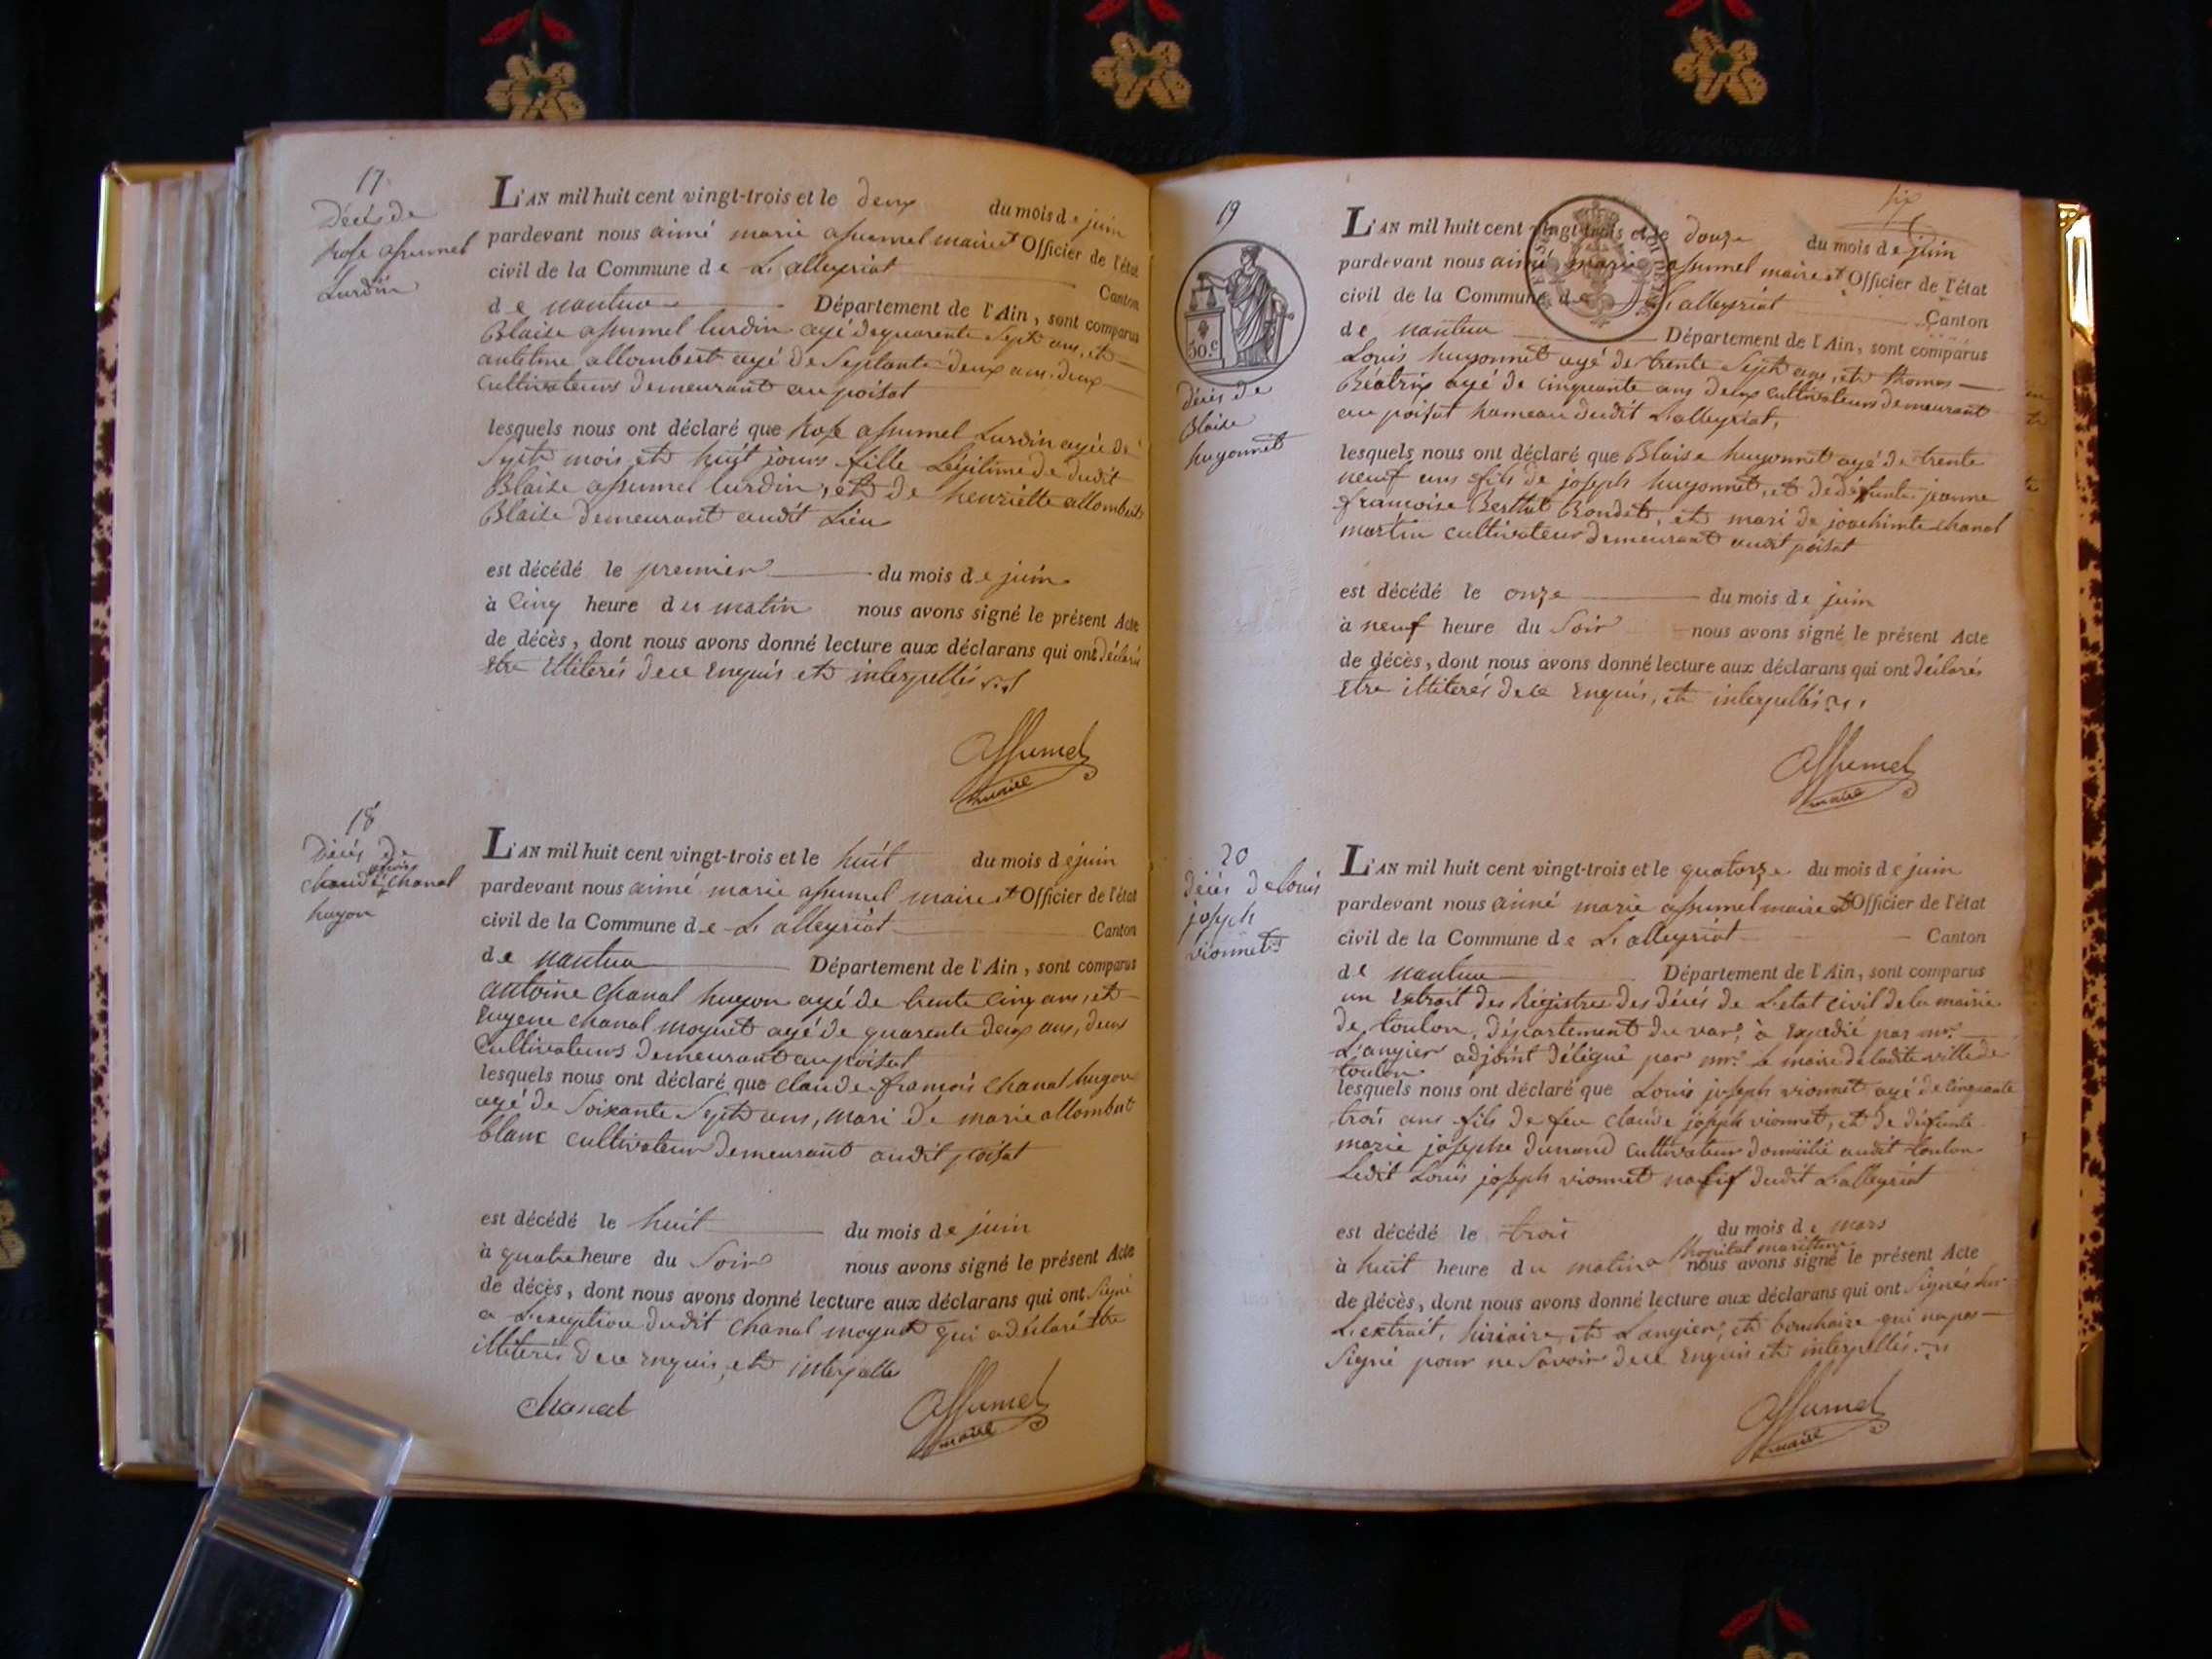 17
Décès de
Rose assumel
Lurdin
L'AN mil huit cent vingt-trois et le deux du mois de juin
pardevant nous aimé marie assumel maire et Officier de l'état
civil de la Commune de L'alleyriat Canton
de nantua Département de l'Ain, sont comparus
Blaise assumel lurdin agé de quarente Sept ans, et
antelme allombert agé de Septante deux ans deux
cultivateurs demeurant au poisat
lesquels nous ont déclaré que Rose assumel Lurdin agée de
Sept mois et huit jours fille Légitime de dudit
Blaise assumel lurdin, et de henriette allombert
Blaise demeurant audit Lieu
est décédé le premier du mois de juin
à Cinq heure du matin nous avons signé le présent Acte
de décès, dont nous avons donné lecture aux déclarans qui ont déclaré
être illiterés de ce enquis et interpellés
assumel
maire
18
Décès de
claude françois chanal
hugon
L'AN mil huit cent vingt-trois et le huit du mois de juin
pardevant nous aimé marie assumel maire et Officier de l'état
civil de la Commune de L'alleyriat Canton
de nantua Département de l'Ain, sont comparus
antoine chanal hugon agé de trente cinq ans, et
Eugene chanal moquet agé de quarente deux ans, deux
Cultivateurs demeurant au poisat
lesquels nous ont déclaré que claude françois chanal hugon
agé de Soixante Sept ans, mari de marie allombert
blanc cultivateur demeurant audit poisat
est décédé le huit du mois de juin
à quatre heure du Soir nous avons signé le présent Acte
de décès, dont nous avons donné lecture aux déclarans qui ont Signé
a L'exception dudit chanal moquet qui a déclaré être
illiterés de ce enquis, et interpellés
Chanal
assumel
maire
six
19
50.c
décès de
Blaise
hugonnet
L'AN mil huit cent vingt-trois et le douze du mois de juin
pardevant nous aimé marie assumel maire et Officier de l'état
civil de la Commune de L'alleyriat Canton
de nantua Département de l'Ain, sont comparus
Louis hugonnet agé de trente Sept ans, et thomas
Béatrix agé de cinquante ans deux cultivateurs demeurant
au poisat hameau dudit L'alleyriat,
lesquels nous ont déclaré que Blaise hugonnet agé de trente
neuf ans fils de joseph hugonnet, et de défunte jeanne
françoise Berthet Bondet, et mari de joachimte chanal
martin cultivateur demeurant audit poisat
est décédé le onze du mois de juin
à neuf heure du Soir nous avons signé le présent Acte
de décès, dont nous avons donné lecture aux déclarans qui ont déclarés
être illiterés de ce enquis, et interpellés
assumel
maire
20
décès de louis
joseph
vionnet
L'AN mil huit cent vingt-trois et le quatorze du mois de juin
pardevant nous aimé marie assumel maire et Officier de l'état
civil de la Commune de L'alleyriat Canton
de nantua Département de l'Ain, sont comparus
un Extrait des Régistres des décès de L'etat civil de la mairie
de toulon, département du var, à Expedié par mr.
L'angier adjoint délégué par mr. Le maire de ladite ville de
toulon
lesquels nous ont déclaré que Louis joseph vionnet agé de cinquante
trois ans fils de feu claude joseph vionnet, et de défunte
marie josephe Dunand cultivateur domicilié audit toulon
Ledit Louis joseph vionnet natif dudit L'alleyriat
est décédé le trois du mois de mars
à huit heure du matin a l'hopital maritime nous avons signé le présent Acte
de décès, dont nous avons donné lecture aux déclarans qui ont Signés sur
L'extrait, hiriaire et Langier, et bouchaire qui na pas
Signé pour ne Savoir de ce enquis et interpellés
assumel
maire